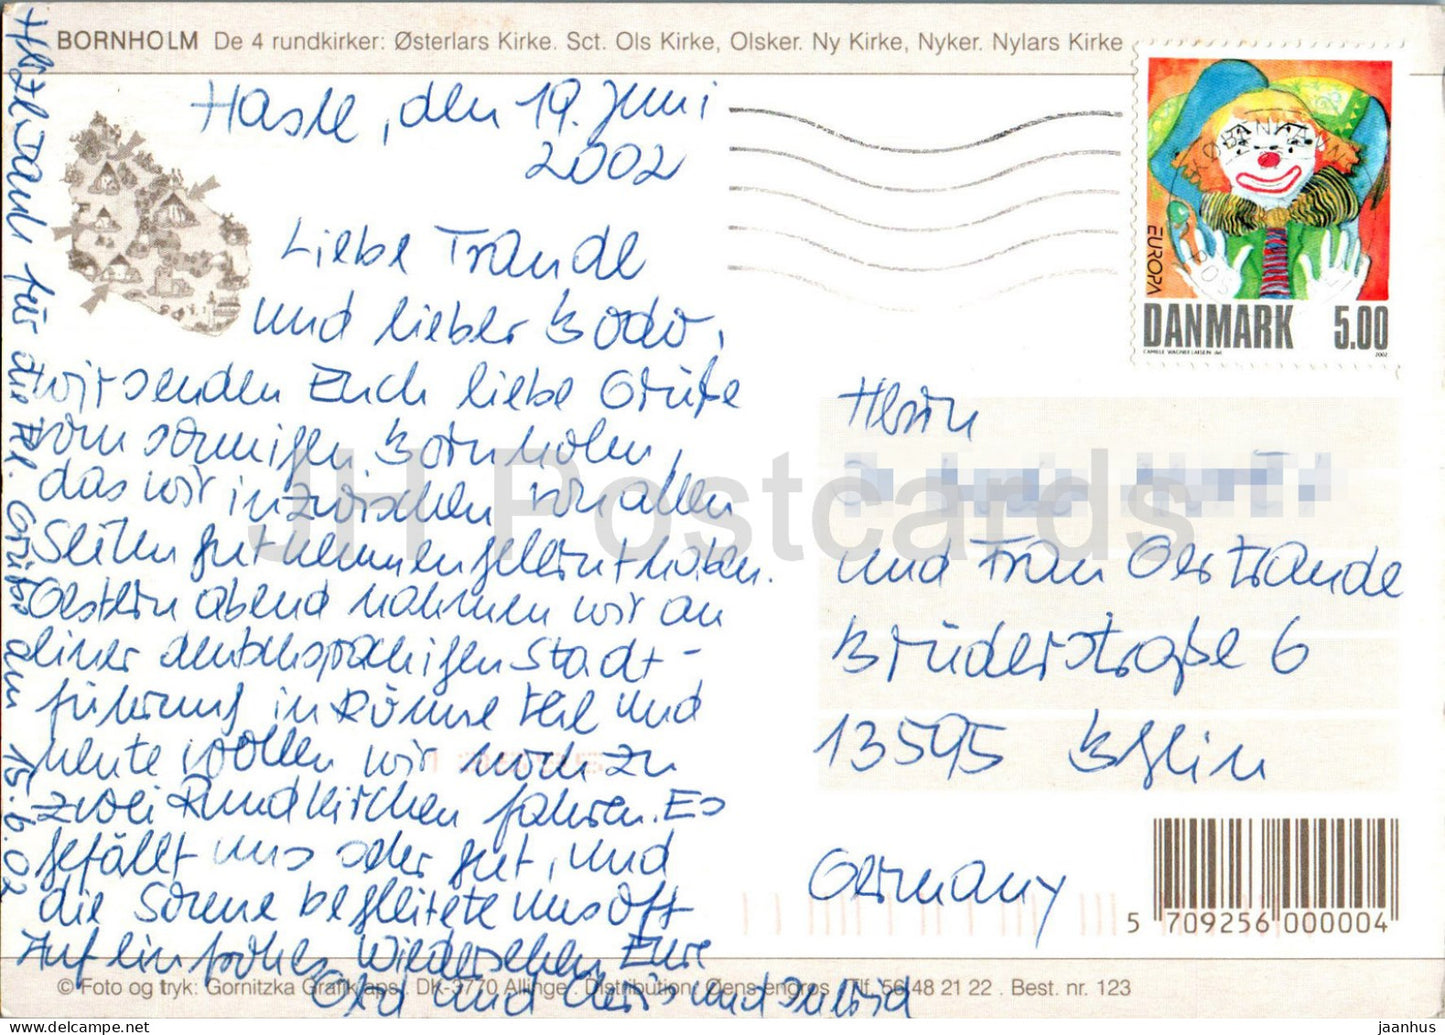 BORNHOLM De 4 rundkirker: Østerlars Kirke. Sct. Ols Kirke, Olsker. Ny Kirke, Nyker. Nylars Kirke
Hasle, den 19. Juni
2002
Liebe Traude
und lieber Bodo,
wir senden Euch liebe Grüße
vom sonnigen Bornholm,
das wir inzwischen von allen
Seiten gut kennengelernt haben.
Gestern abend nahmen wir an
einer deutschsprachigen Stadt-
führung in Rønne teil und
heute wollen wir noch zu
zwei Rundkirchen fahren. Es
gefällt uns sehr gut, und
die Sonne begleitete uns oft
Auf ein frohes Wiedersehen Eure
und Chris und
Herzl. Dank für die tel. Grüße am 15.6.02
KØBENHAVN
EUROPA
DANMARK 5.00
CAMILLE WAGNER LARSEN del.
2002
Herrn
und Frau Gertraude
Brüderstraße 6
13595 Berlin
Germany
5 709256 000004
© Foto og tryk: Gornitzka Grafik aps. DK-3770 Allinge. Distribution: Øens engros. Tlf. 56 48 21 22. Best. nr. 123
JH Postcards
jaanhus